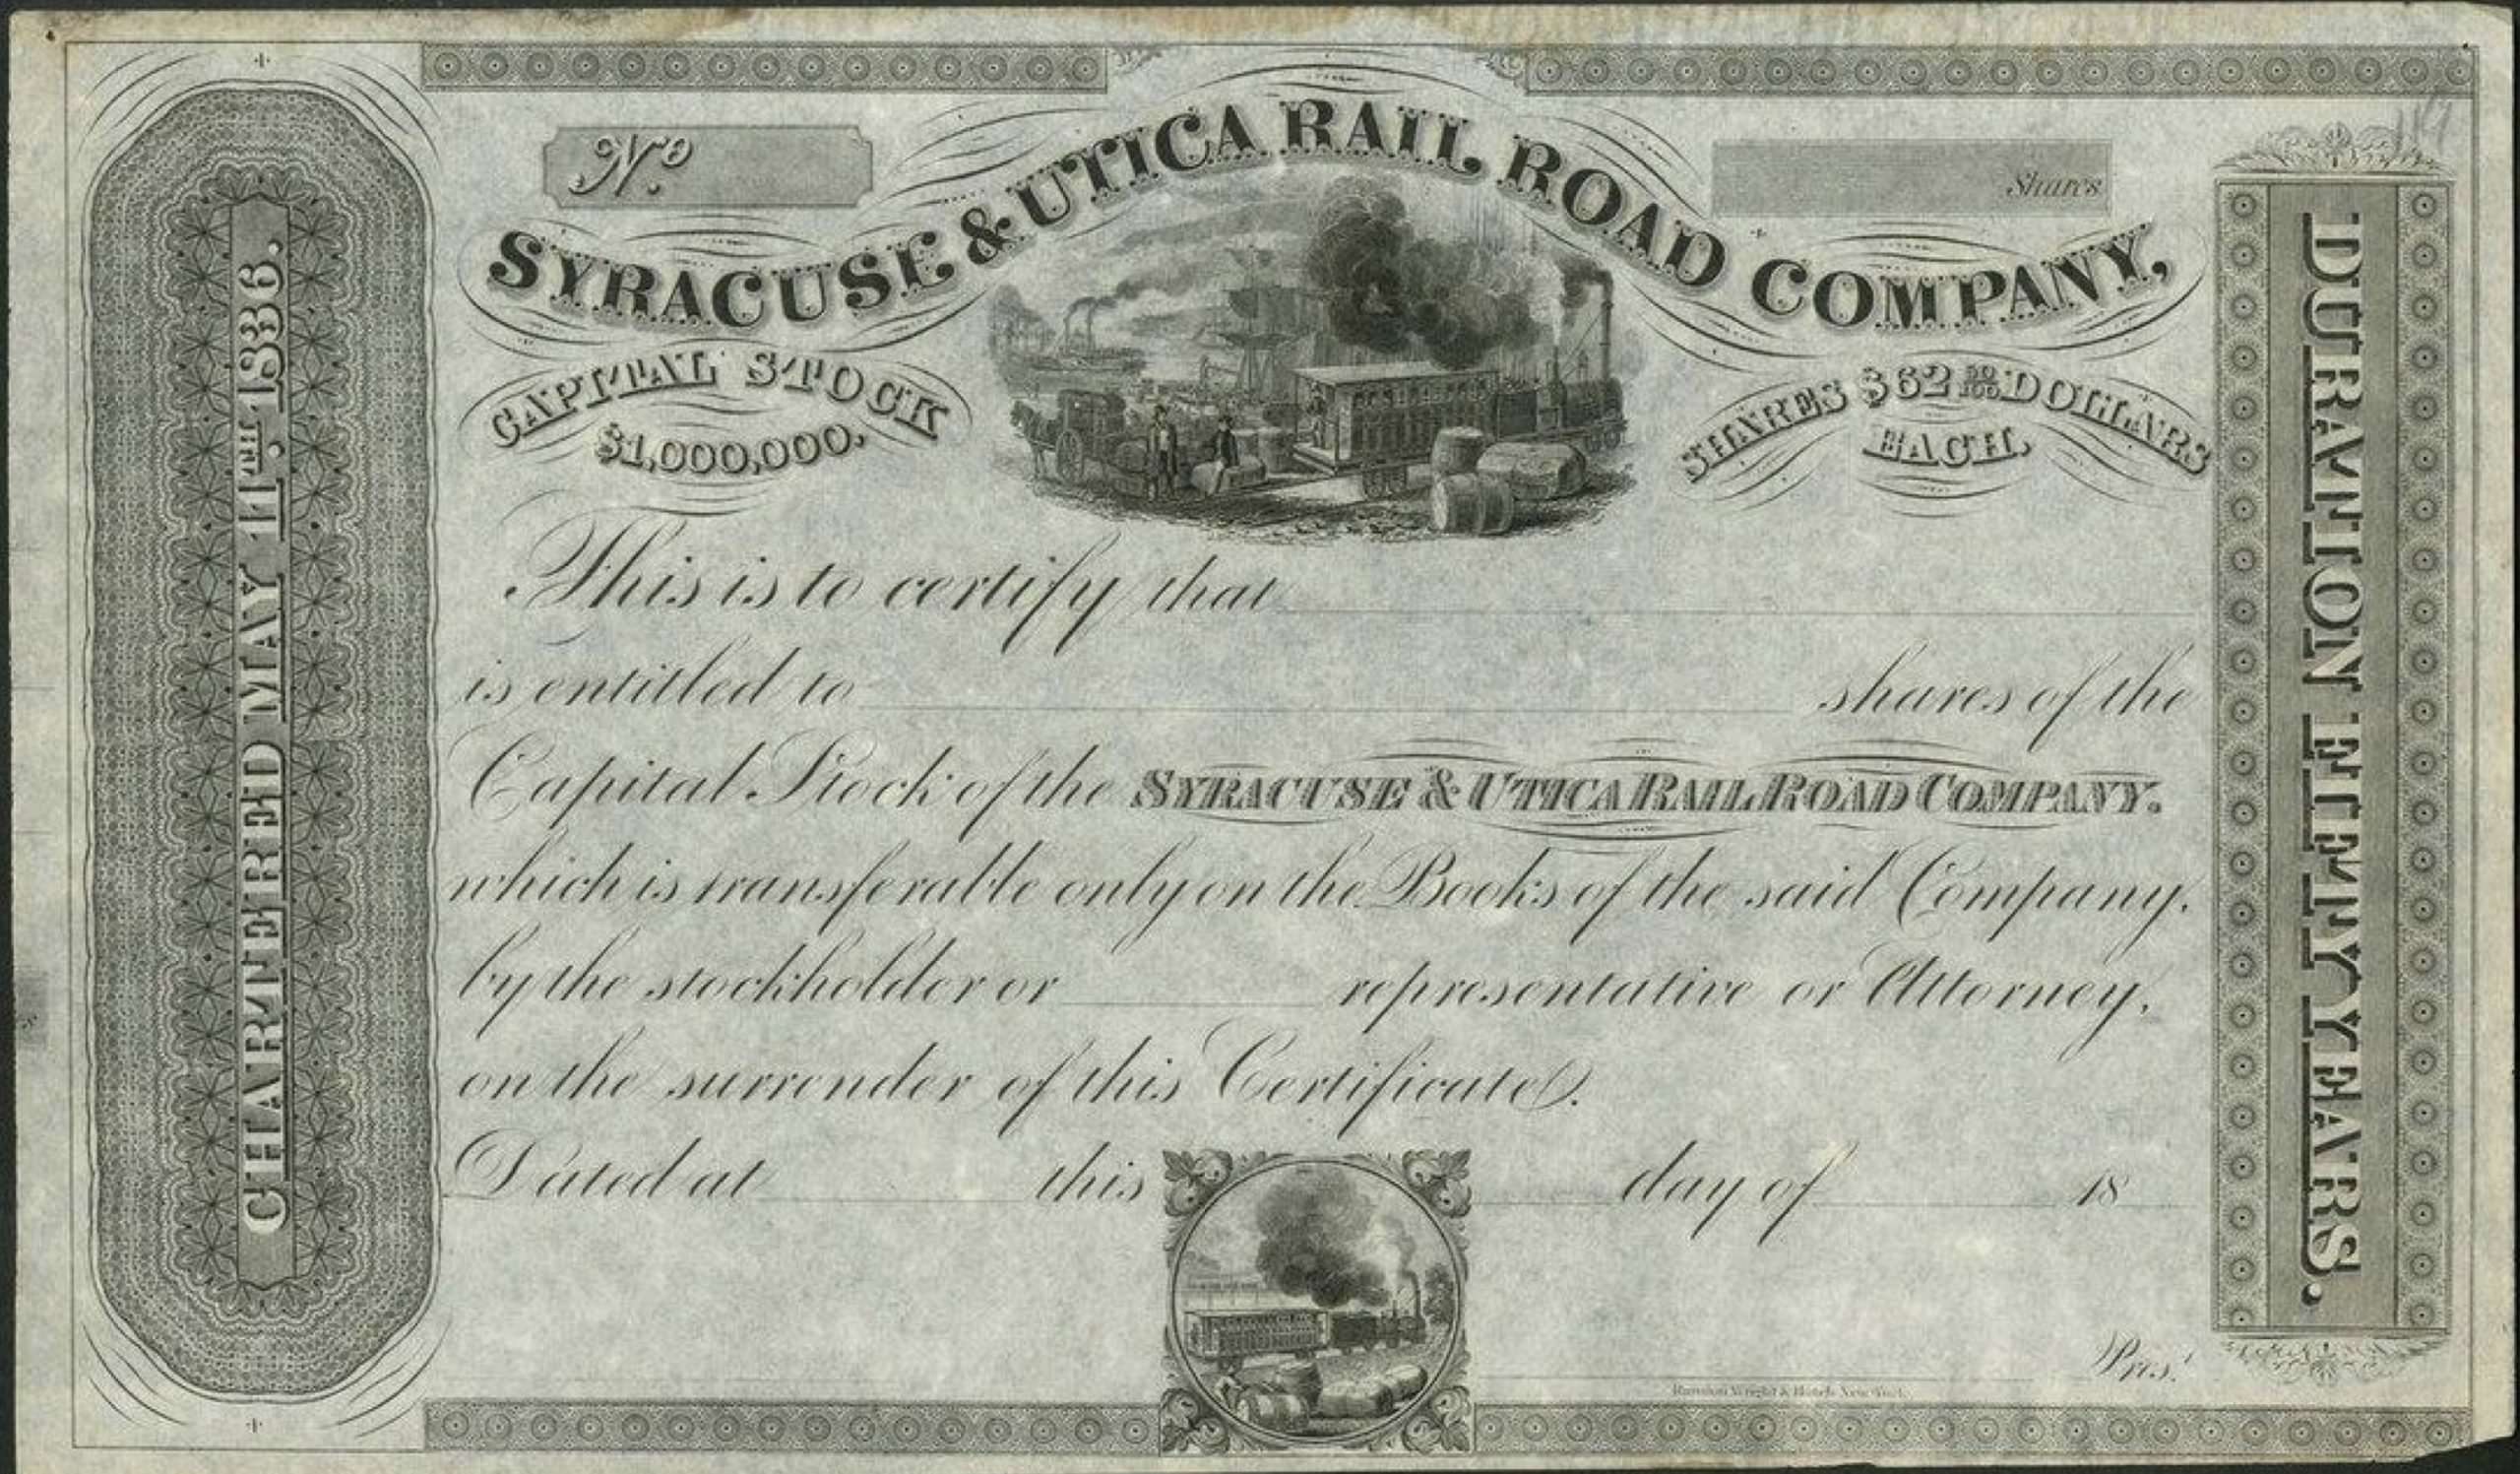 No
Shares
SYRACUSE & UTICA RAIL ROAD COMPANY,
CAPITAL STOCK
$1,000,000.
SHARES $62 50/100 DOLLARS
EACH.
CHARTERED MAY 11TH. 1836.
DURATION FIFTY YEARS.
This is to certify that
is entitled to shares of the
Capital Stock of the SYRACUSE & UTICA RAIL ROAD COMPANY.
which is transferable only on the Books of the said Company,
by the stockholder or representative or Attorney,
on the surrender of this Certificate.
Dated at this day of 18
Prest.
Wright & Hatch New York